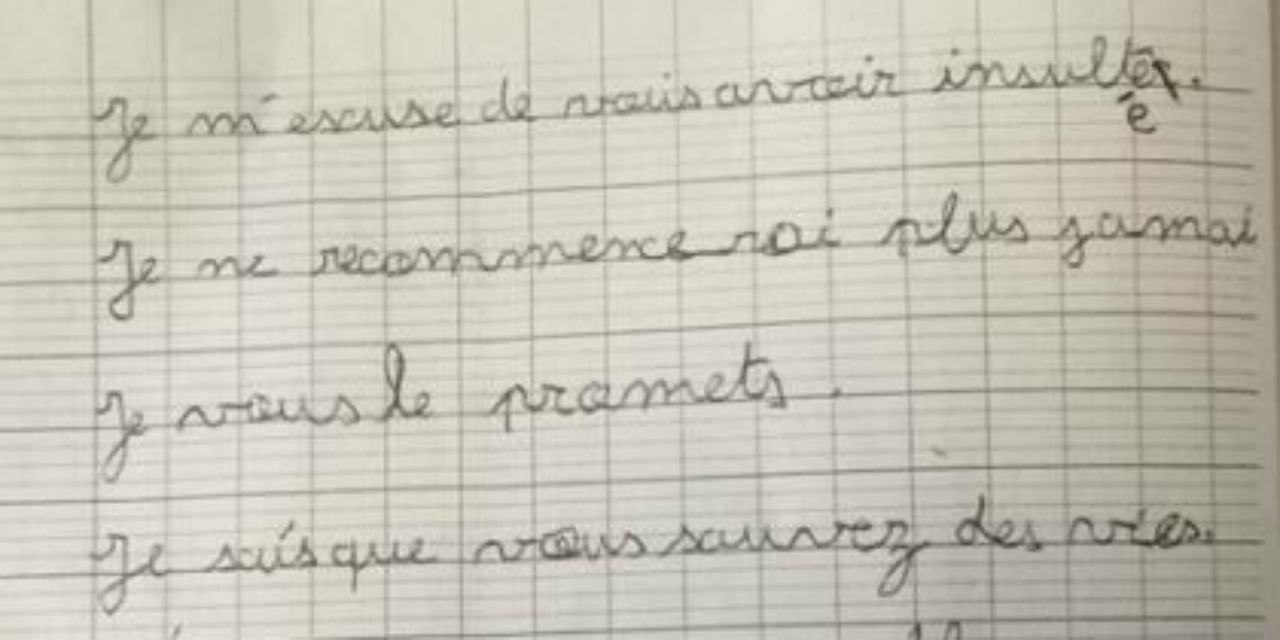 Je m'escuse de vous avoir insulter.
é
Je ne recommence rai plus jamai
Je vous le promets.
Je sais que vous sauvez des vies.